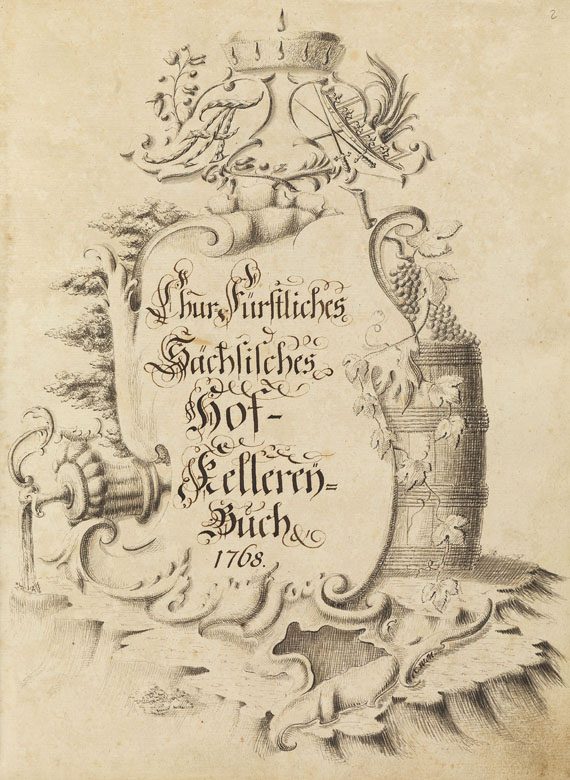 2
Chur Fürstliches
Sächsisches
Hof-
Kellereÿ=
Buch
1768.